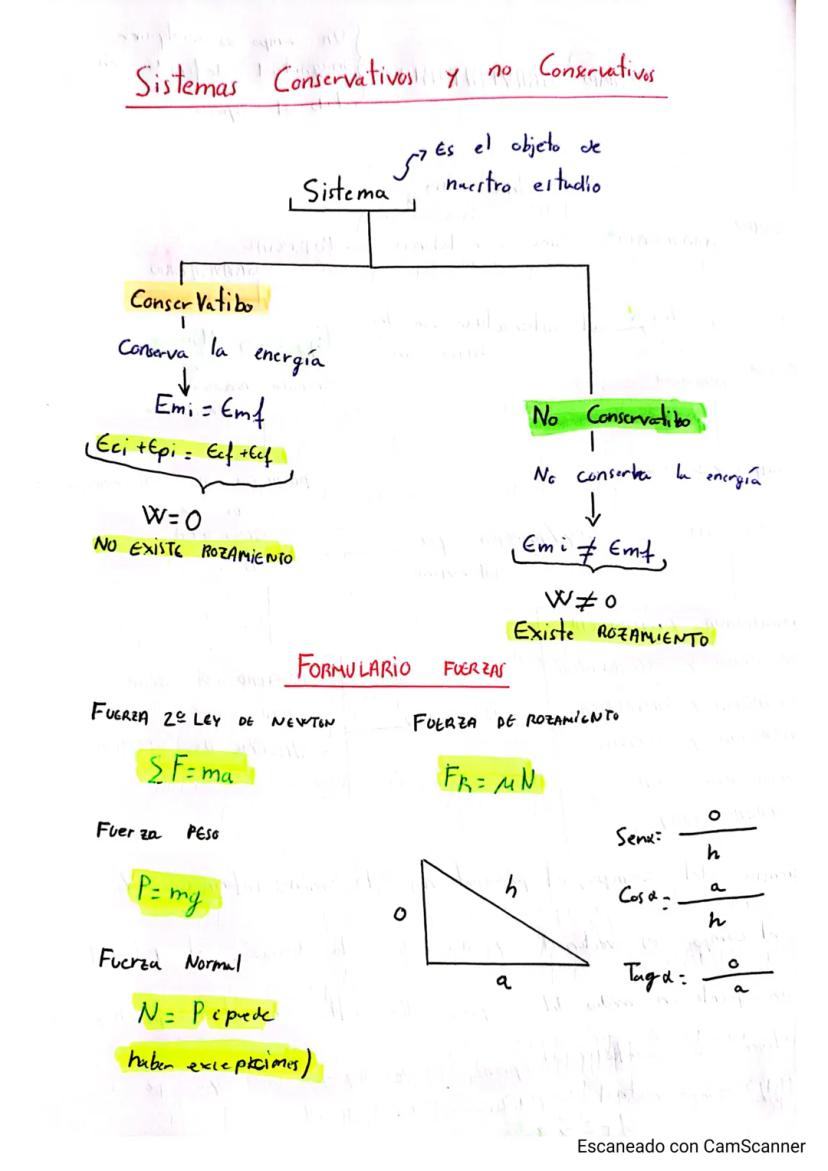 Sistemas Conservativos y no Conservativos
Es el objeto de
nuestro estudio
Sistema
Conservatibo
Conserva la energía
Emi = Emf
Eci + Epi = Ecf + Ecf
W = 0
NO EXISTE ROZAMIENTO
No Conservatibo
No conserba la energía
Emi ≠ Emf
W ≠ 0
Existe ROZAMIENTO
FORMULARIO FUERZAS
FUERZA 2º LEY DE NEWTON
∑F = ma
FUERZA DE ROZAMIENTO
FR = μN
Fuerza PESO
P = mg
Fuerza Normal
N = P (puede
haber excepciones)
o
h
a
Senα = o/h
Cosα = a/h
Tagα = o/a
Escaneado con CamScanner